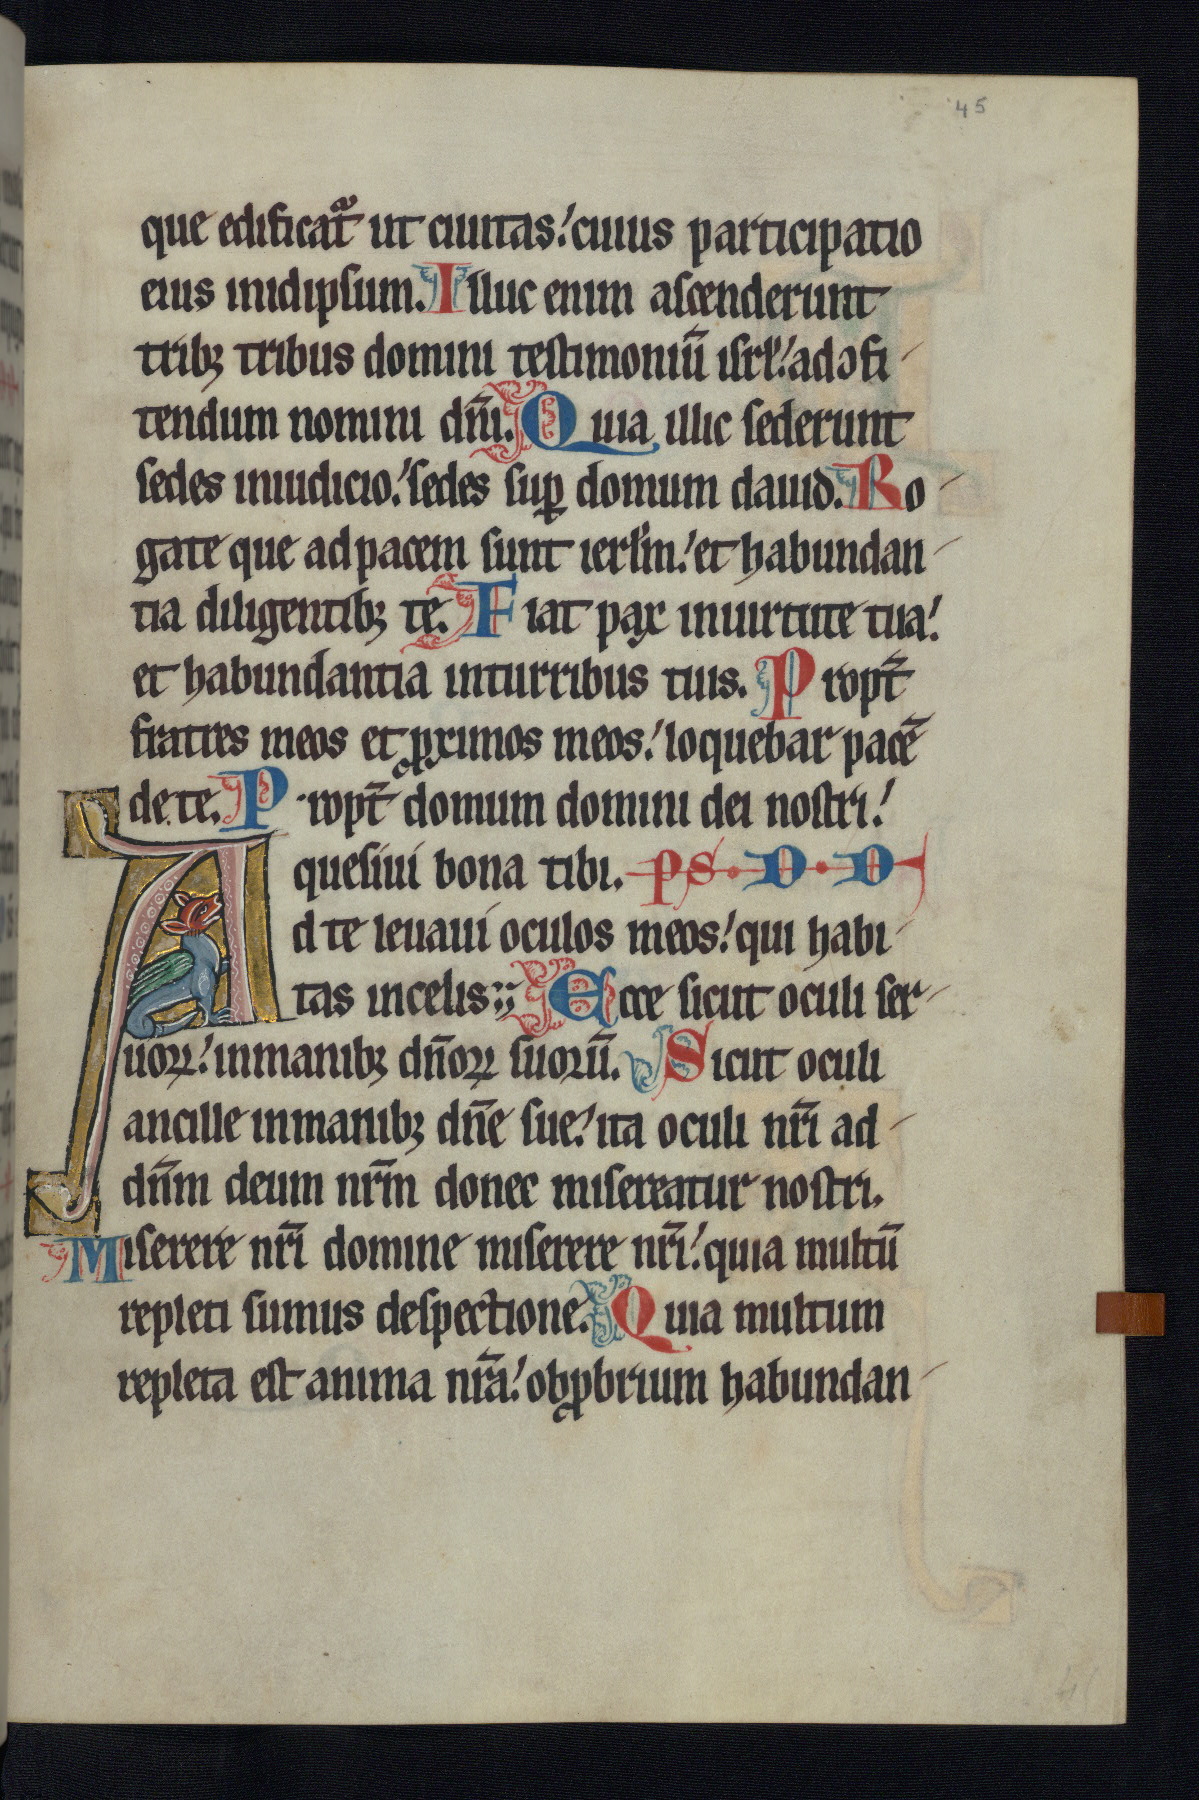 45
que edificatᷓ ut ciuitas: cuius participatio
eius inidipsum. Illuc enim ascenderunt
tribꝫ tribus domini testimoniū isrl̕: ad ↄfi
tendum nomini dn̄i. Quia illic sederunt
sedes iniudicio: sedes suꝑ domum dauid. Ro
gate que adpacem sunt ierl̕m: et habundan
tia diligentibꝫ te. Fiat pax inuirtute tua:
et habundantia inturribus tuis. Propt̄
fratres meos et ꝓximos meos: loquebar pacē
de te. Propt̄ domum domini dei nostri:
quesiui bona tibi. PS. D. D
Ad te leuaui oculos meos: qui habi
tas incelis. Ecce sicut oculi ser
uoꝝ: inmanibꝫ dn̄oꝝ suorū. Sicut oculi
ancille inmanibꝫ dn̄e sue: ita oculi nr̄i ad
dn̄m deum nr̄m donec misereatur nostri.
Miserere nr̄i domine miserere nr̄i: quia multū
repleti sumus despectione. Quia multum
repleta est anima nr̄a: obꝓbrium habundan